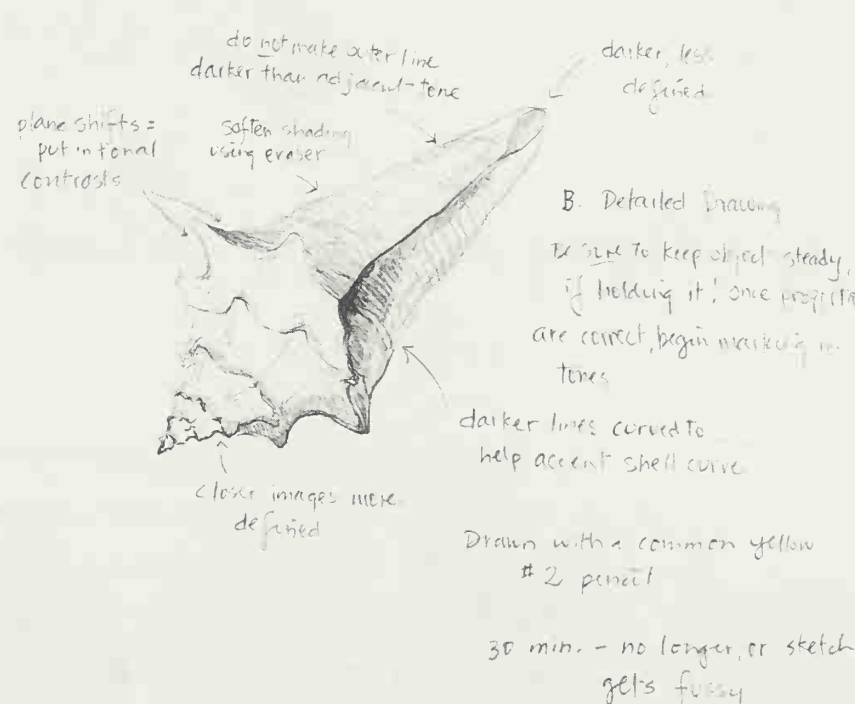 do not make outer line
darker than adjacent tone
darker, less
defined
plane shifts =
put in tonal
contrasts
soften shading
using eraser
B. Detailed Drawing
Be sure to keep object steady,
if holding it! Once
are correct, begin marking in
tones
darker lines curved to
help accent shell curve
closer images more
defined
Drawn with a common yellow
#2 pencil
30 min. - no longer, or sketch
gets fussy